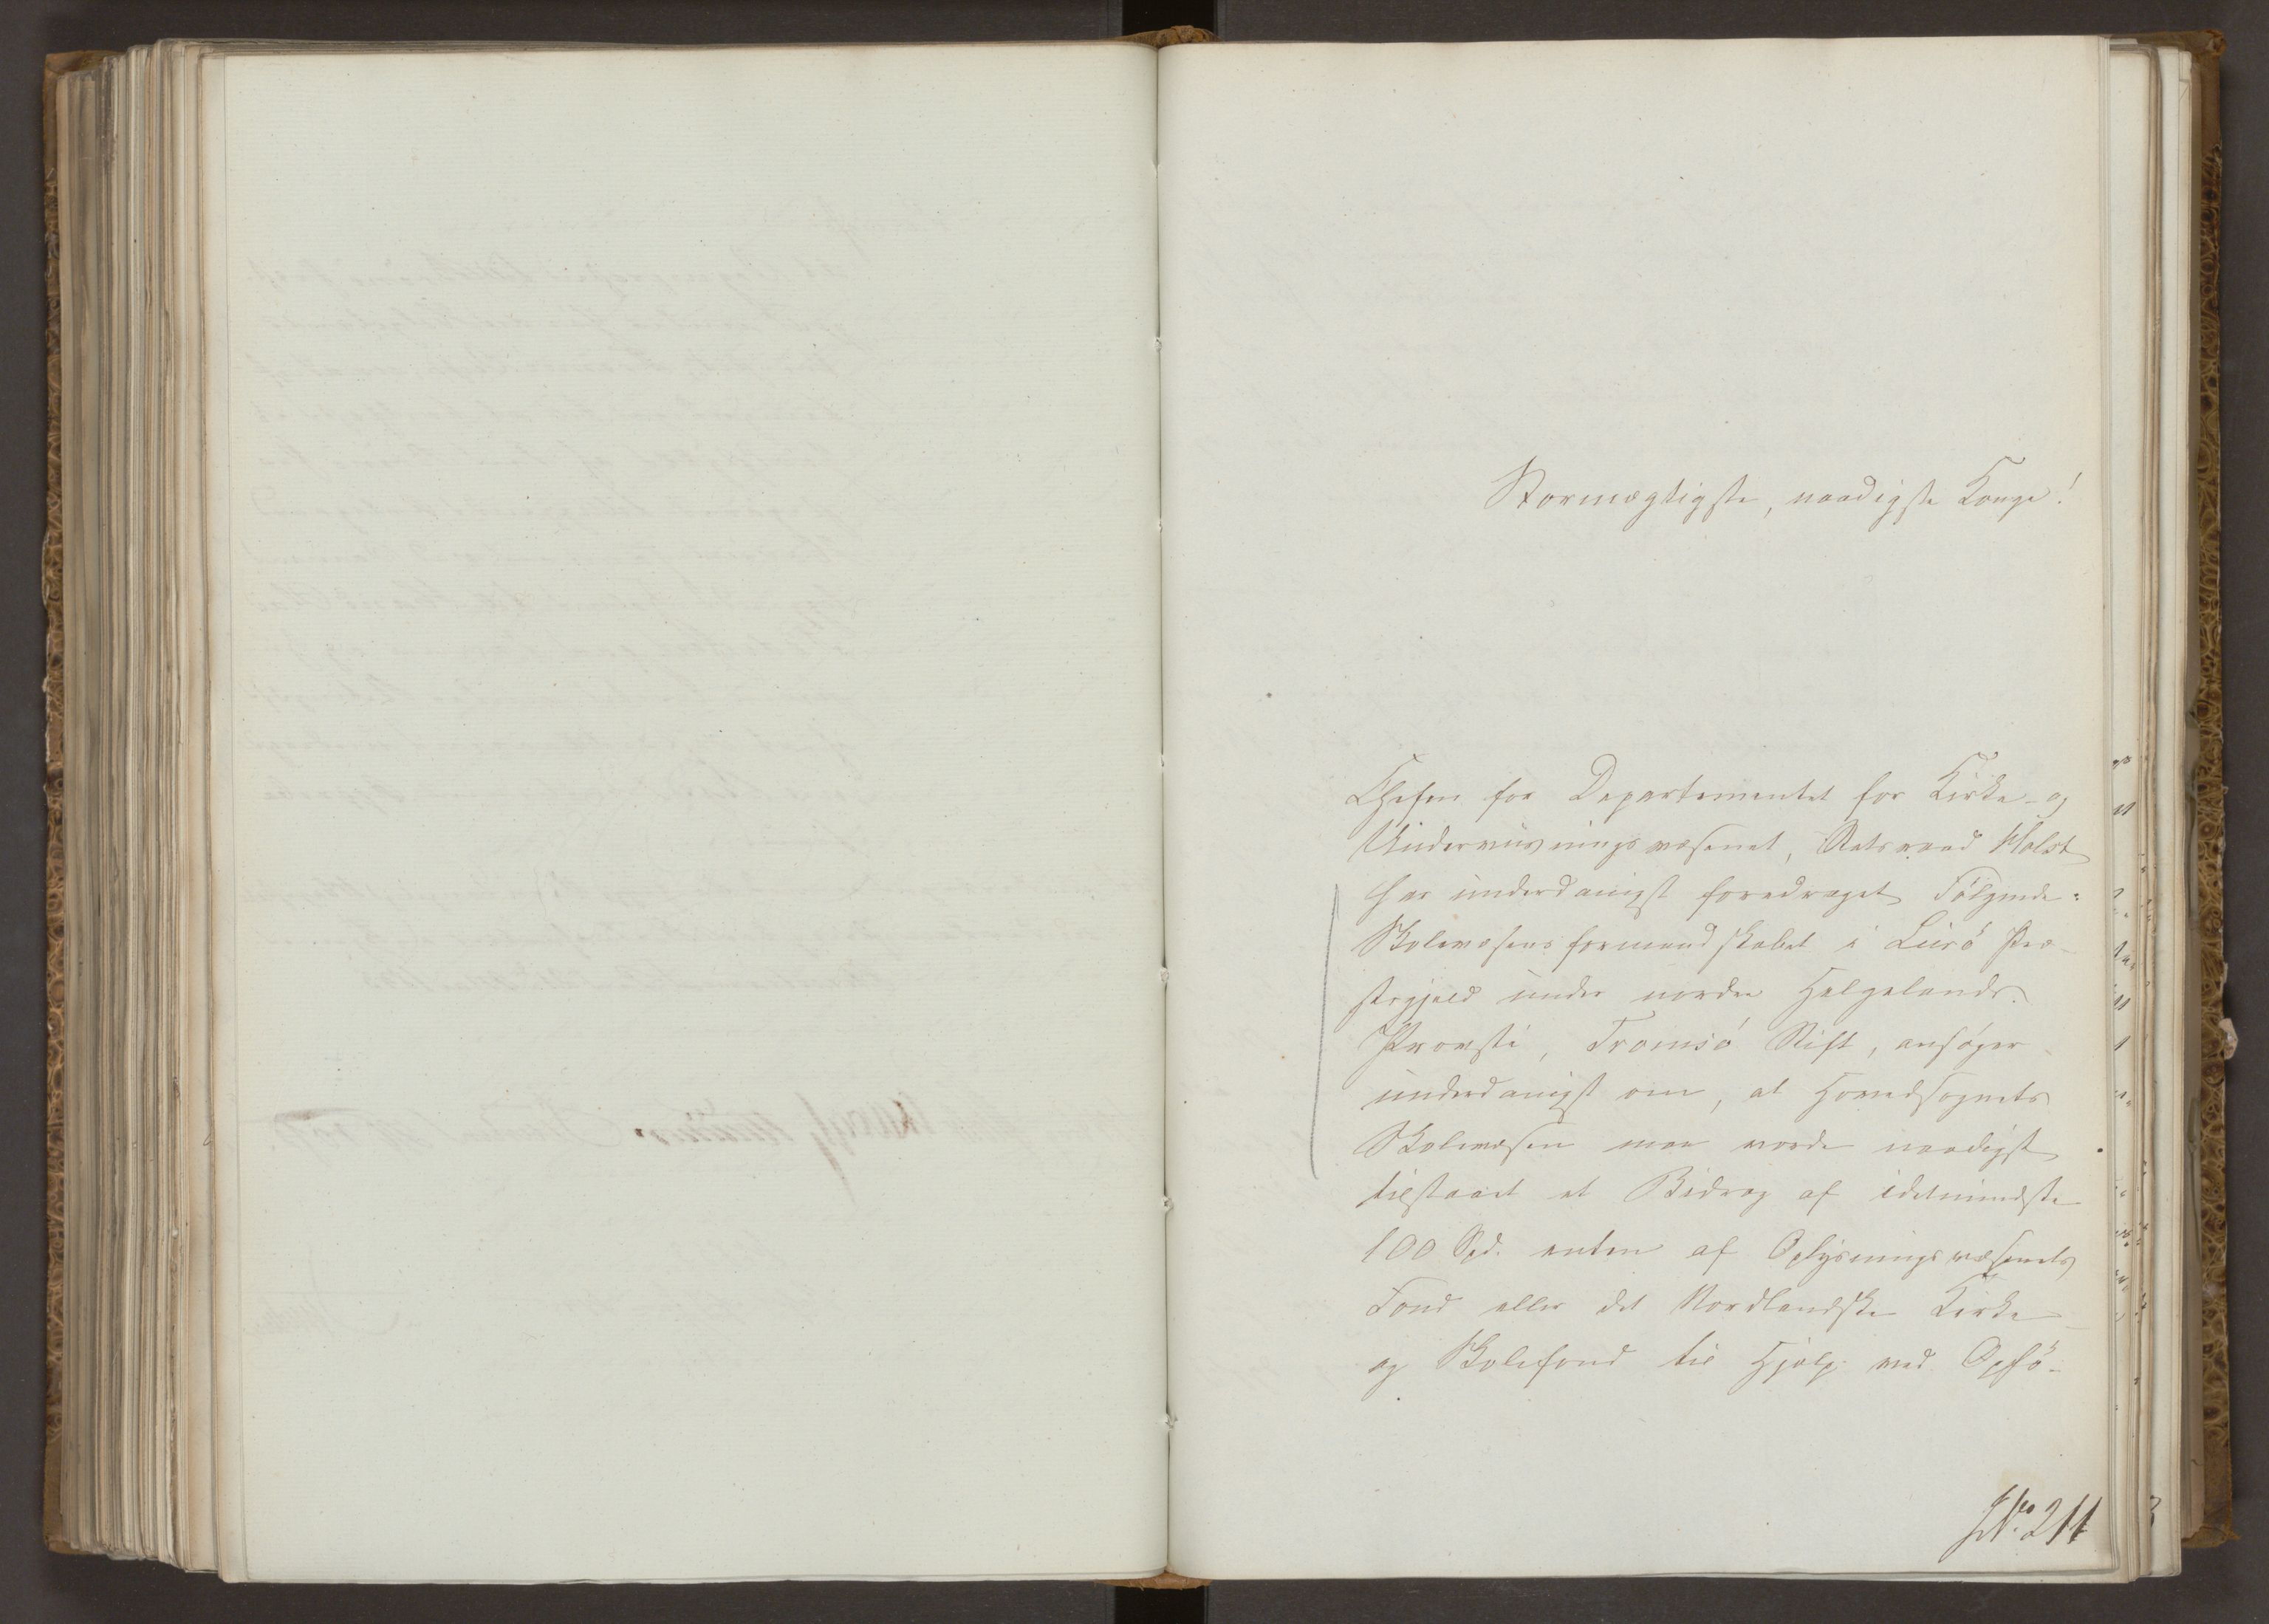 Stormægtigste, naadigste Konge!
Chefen for Departementet for Kirke- og
Underviisningsvæsenet, Statsraad Holst
har underdanigst foredraget Følgende:
Skolevæsensformandskabet i Lurö Præ-
stegjeld under nordre Helgelands
Provsti, Tromsö Stift, ansøger
underdanigst om, at Hovedsognets
Skolevæsen maa vorde naadigst
tilstaaet et Bidrag af idetmindste
100 Spd. enten af Oplysningsvæsenets
Fond eller det Nordlandske Kirke-
og Skolefond til Hjelp ved Opfö-
JNo 211